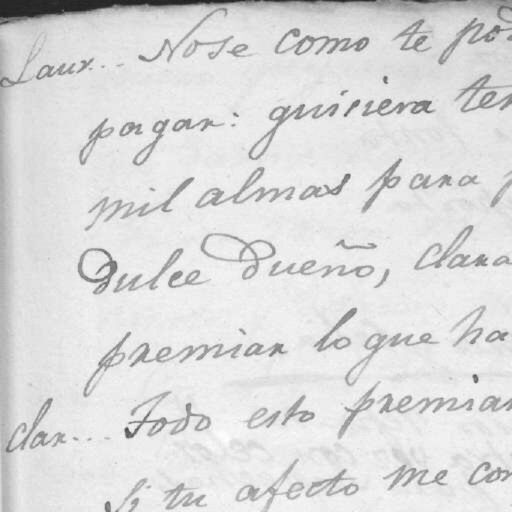 Laur... Nose como te pod
pagar: quisiera ten
mil almas para p
Dulce Dueño, clara
premiar lo que ha
clar... Todo esto premiar
Si tu afecto me con